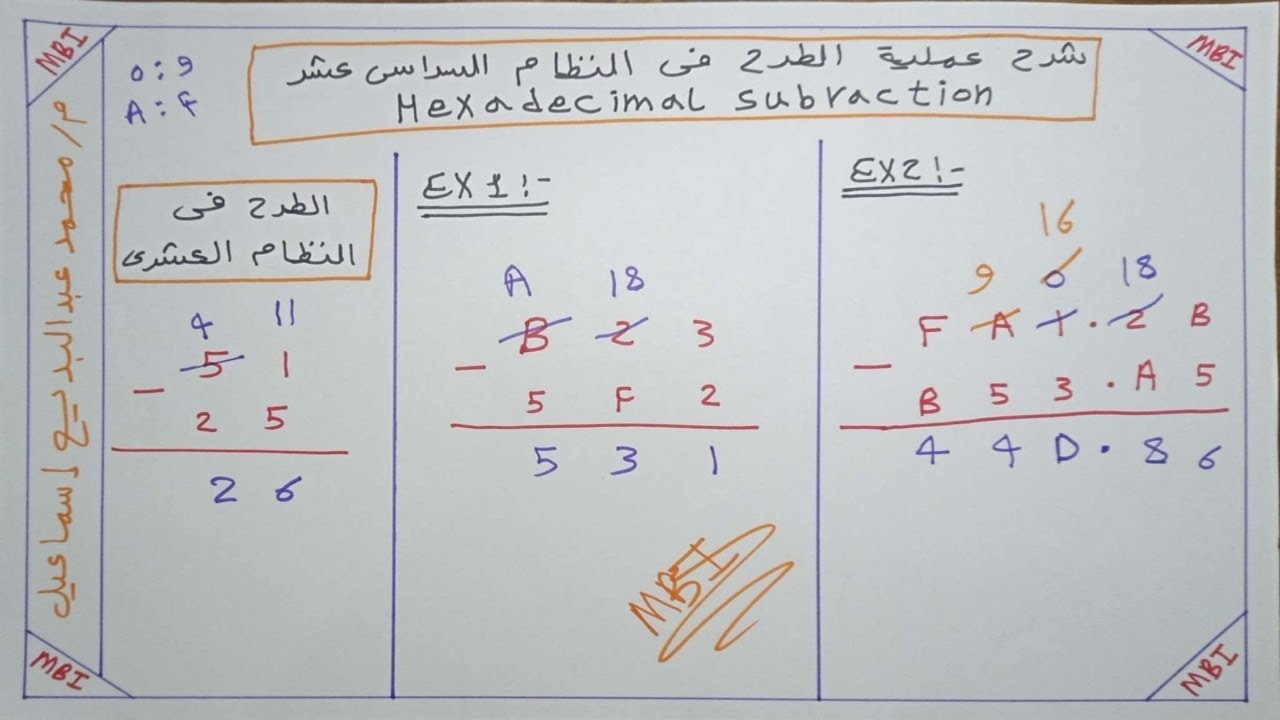 MBI
MBI
م/محمد عبدالبديع إسماعيل
0:9
A:F
شرح عملية الطرح فى النظام السداسى عشر
Hexadecimal subraction
الطرح فى
النظام العشرى
4 11
5 1
- 2 5
2 6
EX1:-
A 18
B 2 3
- 5 F 2
5 3 1
MBI
EX2:-
16
9 0 18
F A 1 . 2 B
- B 5 3 . A 5
4 4 D . 8 6
MBI
MBI